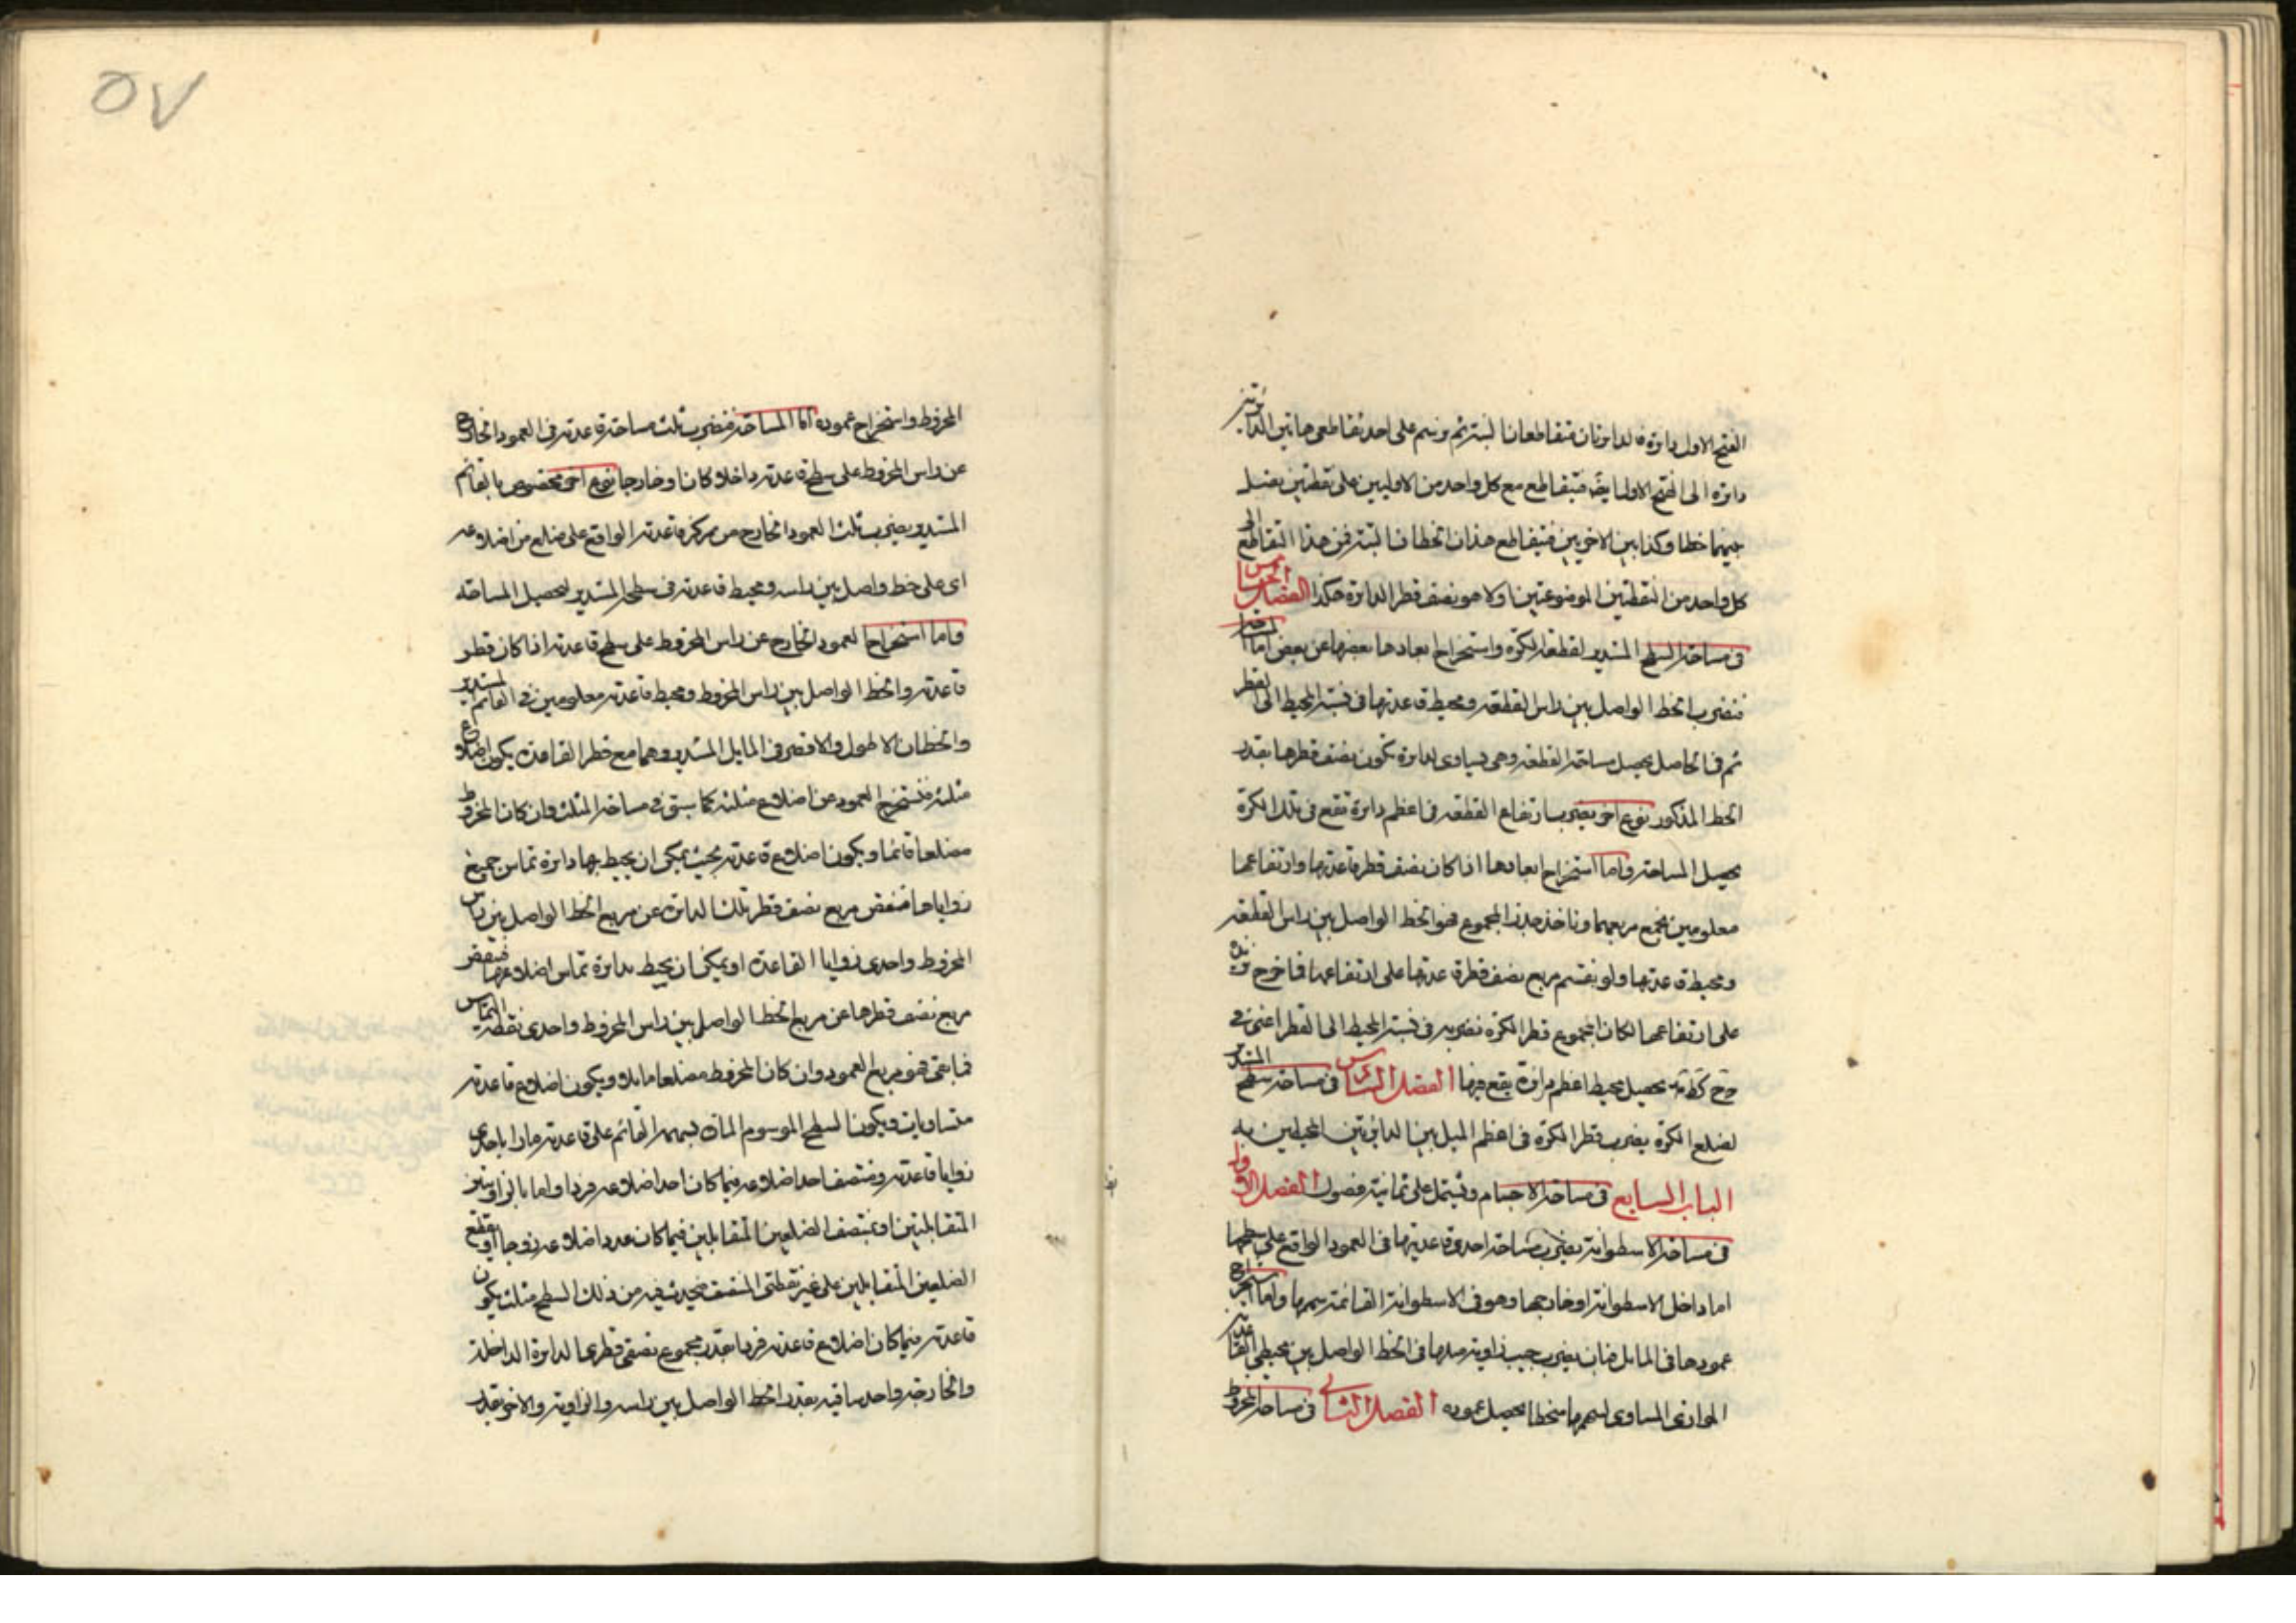 الفتح الاول دايرة فالدايرتان تتقاطعان البتة ثم نرسم على احد تقاطعى هاتين الدايرتين
دايرة الى الفتح الاول ايضه فتقاطع مع كل واحد من الاوليين على نقطتين نصل
بينهما خطا وكذا بين الاخريين فيتقاطع هذان الخطان البتة فمن هذا التقاطع الى
كل واحد من النقطتين الموضوعتين اولا هو نصف قطر الدايرة هكذا الفصل الخامس
فى مساحة السطح المستدير لقطعة الكرة واستخراج ابعادها بعضها عن بعض اما المساحة
فنضرب الخط الواصل بين راس القطعة ومحيط قاعدتها فى نسبة المحيط الى القطر
ثم فى الحاصل يحصل مساحة القطعة وهى يساوى لدايرة تكون نصف قطرها بقدر
الخط المذكور نوع اخر يضرب ارتفاع القطعة فى اعظم دايرة تقع فى تلك الكرة
يحصل المساحة واما استخراج ابعادها اذا كان نصف قطر قاعدتها وارتفاعها
معلومين نجمع مربعيهما وناخذ جذر المجموع فهو الخط الواصل بين راس القطعة
ومحيط قاعدتها ولو نقسم مربع نصف قطر قاعدتها على ارتفاعها فما خرج نزيده
على ارتفاعها لكان المجموع قطر الكرة نضربه فى نسبة المحيط الى القطر اعنى فى
يحصل محيط اعظم دايرة يقع فيها الفصل السادس فى مساحة سطح المستدير
لضلع الكرة يضرب قطر الكرة فى اعظم الميل بين الدايرتين المحيطين به
الباب السابع فى مساحة الاجسام ويشتمل على ثمانية فصول الفصل الاول
فى مساحة الاسطوانة يضرب مساحة احدى قاعدتيها فى العمود الواقع على سطحها
اما داخل الاسطوانة او خارجها وهو فى الاسطوانة القائمة سهمها واما استخراج
عمودها فى المايل فبان يضرب جيب زاوية ميلها فى الخط الواصل بين محيطى القاعدتين
الموازى المساوى لسهمها منحطا يحصل عموده الفصل الثانى فى مساحة المخروط
المخروط واستخراج عموده اما المساحة فنضرب ثلث مساحة قاعدته فى العمود الخارج
عن راس المخروط على سطح قاعدته داخلا كان او خارجا نوع اخر مخصوص بالقائم
المستدير يضرب ثلث العمود الخارج من مركز قاعدته الواقع على ضلع من اضلاعه
اى على خط واصل بين راسه ومحيط قاعدته فى سطحه المستدير ليحصل المساحة
واما استخراج العمود الخارج عن راس المخروط على سطح قاعدته اذا كان قطر
قاعدته والخط الواصل بين راس المخروط ومحيط قاعدته معلومين فى القائم المستدير
والخطان الاطول والاقصر فى المايل المستدير وهما مع قطر القاعدة يكون اضلاع
مثلثة فنستخرج العمود عن اضلاع مثلثة كما سبق فى مساحة المثلث وان كان المخروط
مضلعا قائما ويكون اضلاع قاعدته بحيث يمكن ان يحيط بها دايرة تماس جميع
زواياها فننقص مربع نصف قطر تلك الدايرة عن مربع الخط الواصل بين راس
المخروط واحدى زوايا القاعدة او يمكن ان يحيط بدايرة تماس اضلاعها فننقص
مربع نصف قطرها عن مربع الخط الواصل بين راس المخروط واحدى نقطة التماس
فما بقى فهو مربع العمود وان كان المخروط مضلعا مايلا ويكون اضلاع قاعدته
متساويات ويكون السطح الموسوم المار بسهمه القائم على قاعدته مارا باحدى
زوايا قاعدته ومنتصف احد اضلاعه فيما كان احد اضلاعه فردا واما بالزاويتين
المتقابلتين او بمنتصف الضلعين المتقابلين فيما كان عدد اضلاعه زوجا او يقطع
الضلعين المتقابلين على غير نقطتى المنتصف فيحدث فيه من ذلك السطح مثلث يكون
قاعدته فيما كان اضلاع قاعدته فردا بقدر مجموع نصفى قطرى الدايرة الداخلة
والخارجة واحد ساقيه بقدر الخط الواصل بين راسه والزاوية والاخر بقدر
٥٧